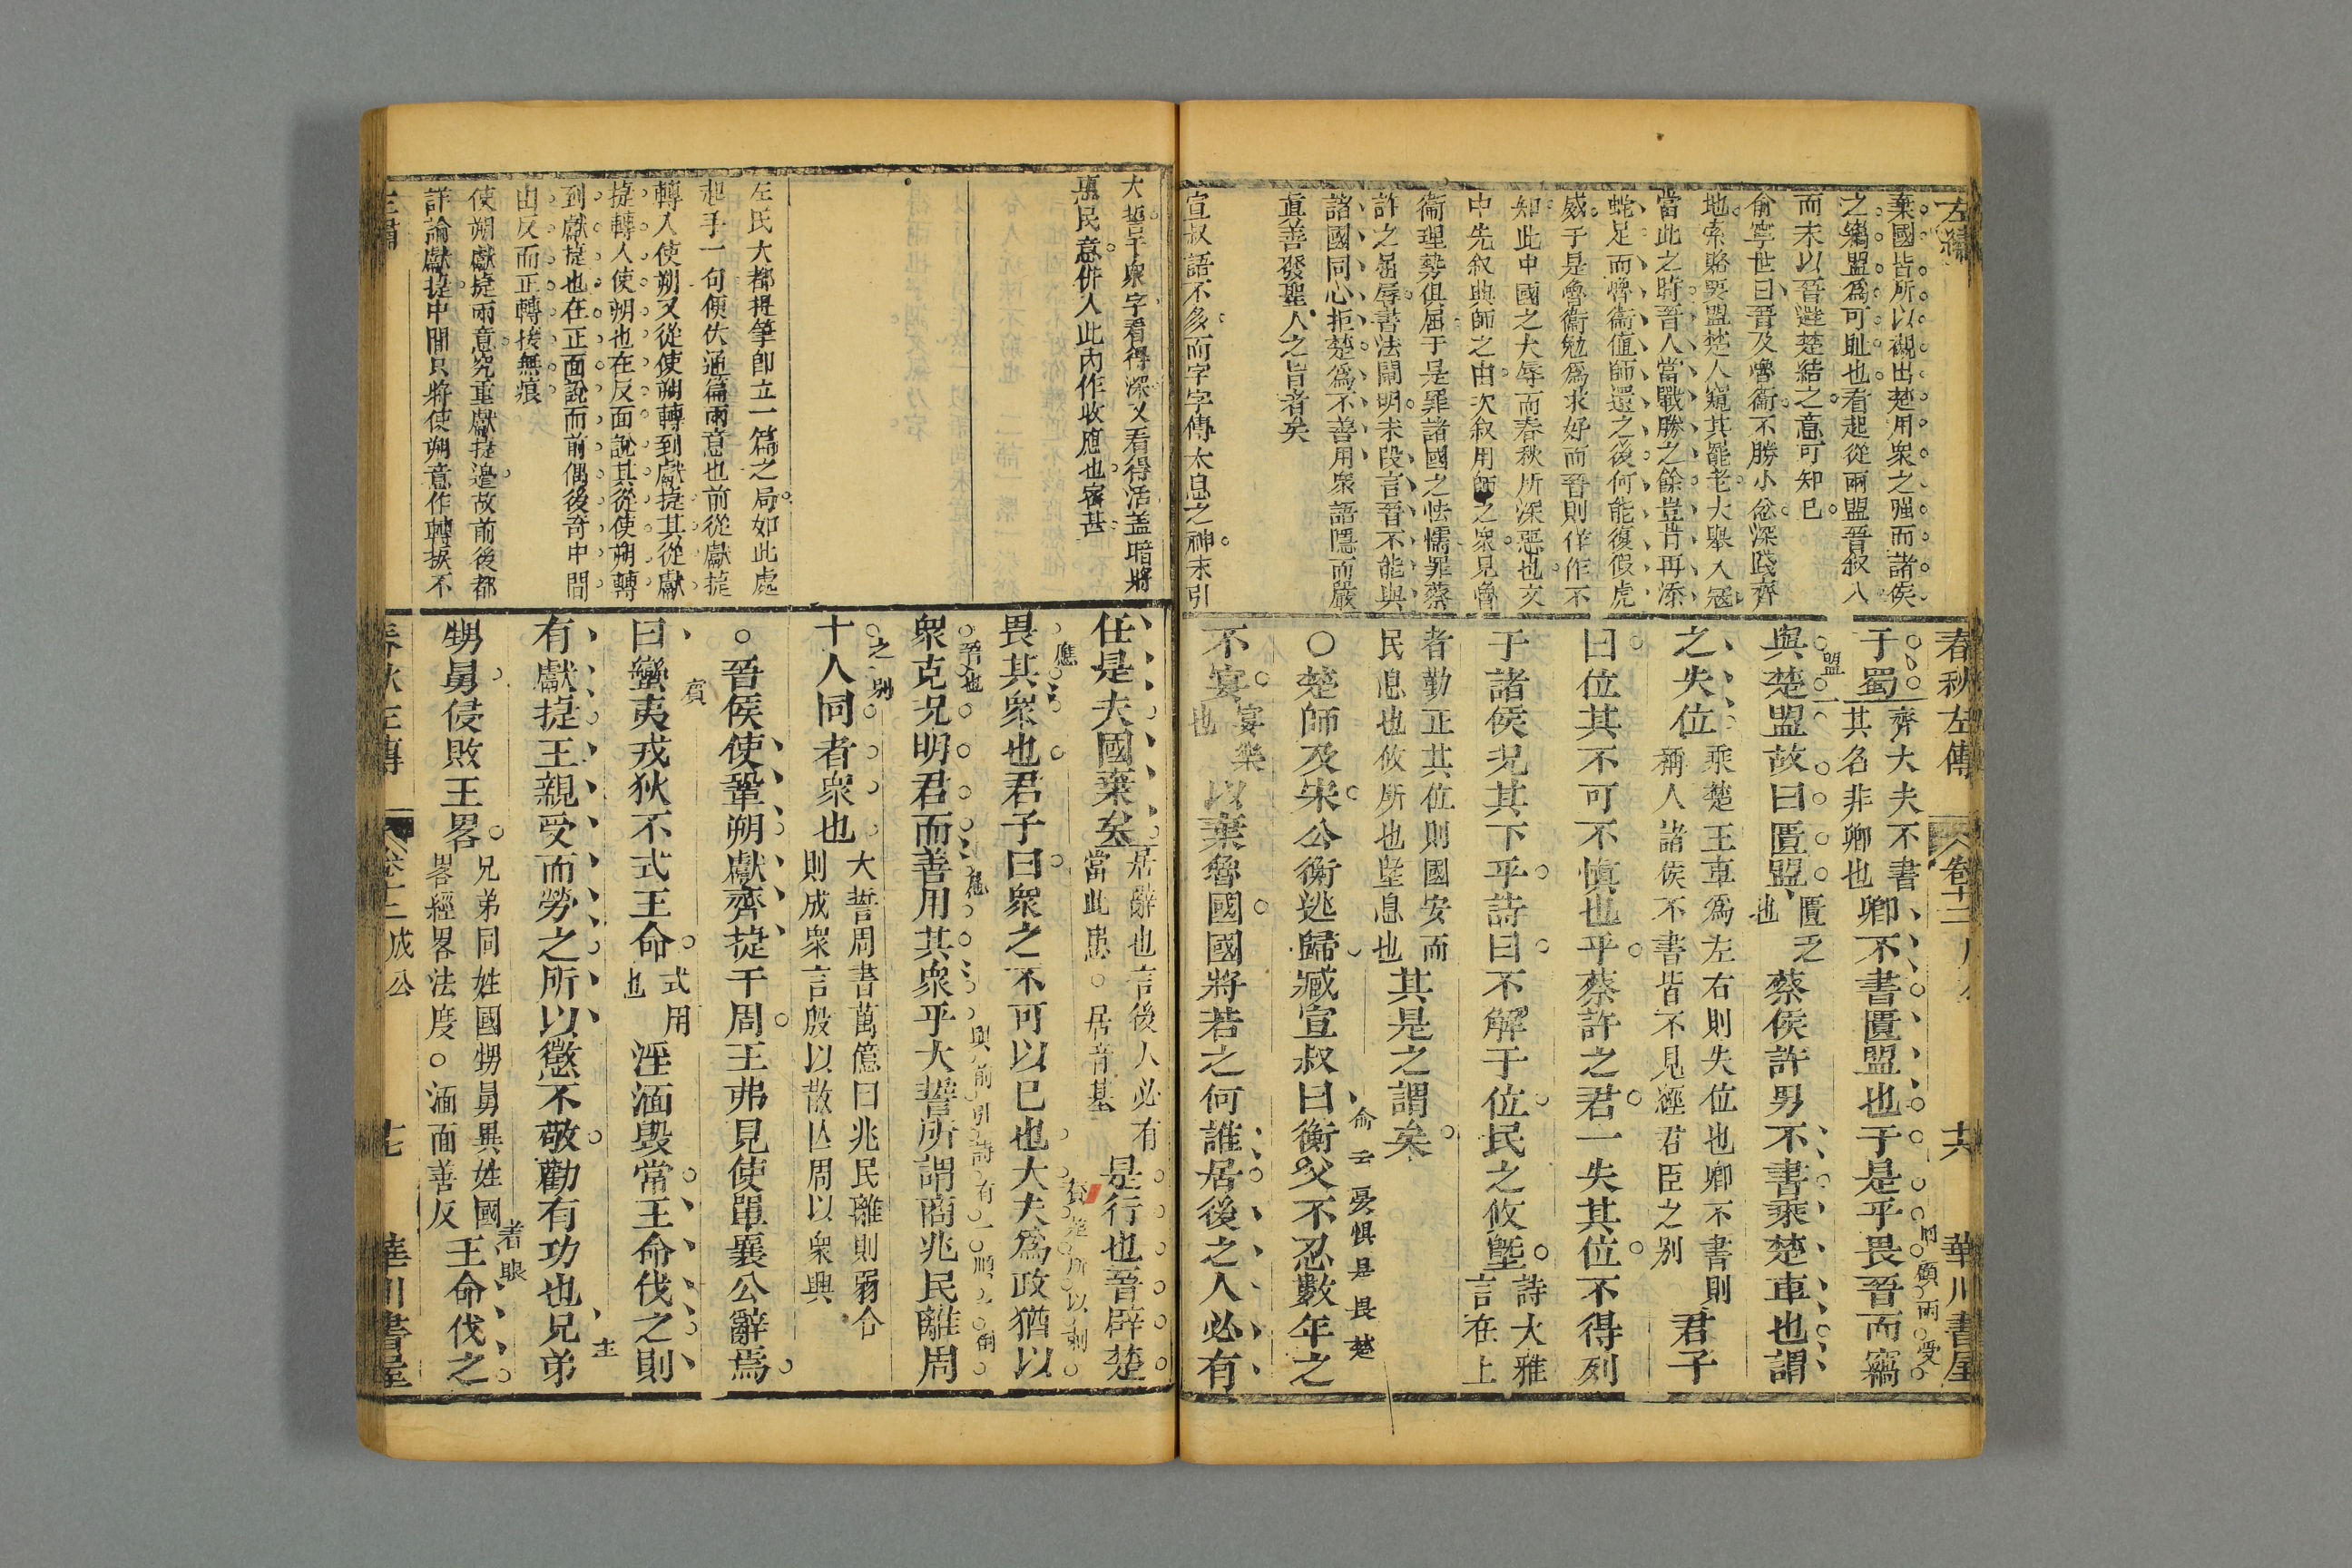 左繡
棄國皆所以襯出楚用衆之强而諸侯
之竊盟爲可恥也看起從兩盟晉叙入
而末以晉避楚結之意可知已
俞寧世曰晉及魯衞不勝小忿深踐齊
地索賂要盟楚人窺其罷老大舉入寇
當此之時晉人當戰勝之餘豈肯再添
蛇足而魯衞值師還之後何能復假虎
威于是魯衞勉爲求好而晉則佯作不
知此中國之大辱而春秋所深惡也文
中先叙與師之由次叙用師之衆見魯
衞理勢俱屈于是罪諸國之怯懦罪蔡
許之屈辱書法闡明末段言晉不能與
諸國同心拒楚爲不善用衆語隱而嚴
直善發聖人之旨者矣
宣叔語不多而字字傳太息之神末引
春秋左傳 卷十二 成公 十六 華川書屋
于蜀齊大夫不書其名非卿也卿不書匱盟也于是乎畏晉而竊
與楚盟故曰匱盟匱乏也蔡侯許男不書乘楚車也謂
之失位乘楚王車爲左右則失位也卿不書則稱人諸侯不書皆不見經君臣之别君子
曰位其不可不慎也乎蔡許之君一失其位不得列
于諸侯况其下乎詩曰不解于位民之攸塈詩大雅言在上
者勤正其位則國安而民息也攸所也塈息也其是之謂矣
○楚師及宋公衡逃歸臧宣叔曰衡父不忍數年之
俞云要惧是畏楚
不宴宴樂也以棄魯國國將若之何誰居後之人必有
大誓于衆字看得深又看得活蓋暗將
惠民意併入此内作收應也密甚
左氏大都提筆卽立一篇之局如此處
起手一句傾伏通篇兩意也前從獻捷
轉入使朔又從使朔轉到獻捷其從獻
捷轉人使朔也在反面說其從使朔轉
到獻捷也在正面說而前偶後奇中間
由反而正轉接無痕
使朔獻捷兩意究重獻捷邊故前後都
詳論獻捷中間只將使朔意作轉捩不
任是夫國棄矣居辭也言後人必有當此患○居音基是行也晉辟楚
畏其衆也君子曰衆之不可以已也大夫爲政猶以
衆克况明君而善用其衆乎大誓所謂商兆民離周
十人同者衆也大誓周書萬億曰兆民離則弱合則成衆言殷以散亡周以衆興
○晉侯使鞏朔獻齊捷于周王弗見使單襄公辭焉
曰蠻夷戎狄不式王命式用也淫湎毁常王命伐之則
有獻捷王親受而勞之所以懲不敬勸有功也兄弟
甥舅侵敗王畧兄弟同姓國甥舅異姓國畧經畧法度○湎面善反王命伐之
春秋左傳 卷十二 成公 十七 華川書屋